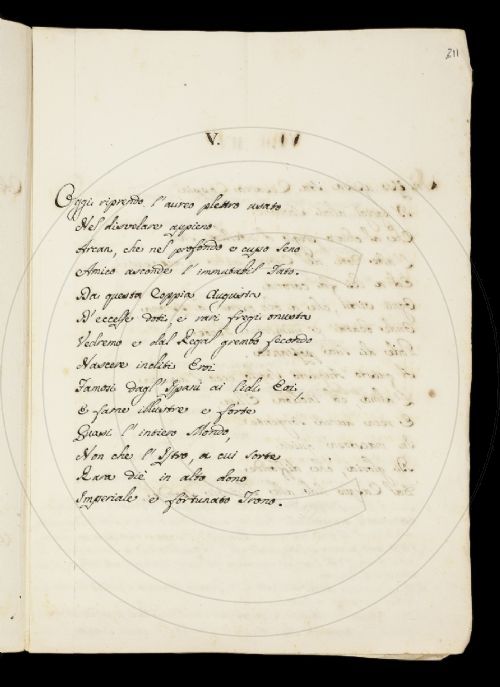 211
V.
Oggi riprendo l'aureo plettro usato
Nel disvelare appieno
Arcan, che nel profondo e cupo seno
Amico asconde l'immutabil Fato.
Da questa Coppia Augusta
D'eccelse doti, e rari fregi onusta
Vedremo e dal Regal grembo fecondo
Nascere incliti Eroi
Famosi dagl'Ispani ai lidi Eoi,
E farne illustre e forte
Quasi l'intiero Mondo,
Non che l'Istro, a cui sorte
Rara diè in alto dono
Imperiale e fortunato Trono.